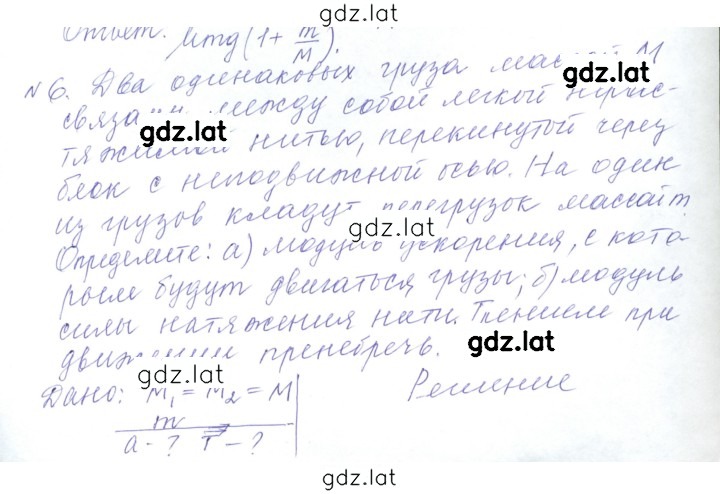 gdz.lat
Ответ: μmg(1 + m/M).
№6. Два одинаковых груза массой M
gdz.lat
между собой легкой нерас-
gdz.lat
тяжимой нитью, перекинутой через
блок с неподвижной осью. На один
из грузов кладут перегрузок массой m.
gdz.lat
Определите: а) модуль ускорения, с кото-
рым будут двигаться грузы; б) модуль
силы натяжения нити. Трением при
движении пренебречь.
gdz.lat
gdz.lat
Дано: M₁ = M₂ = M
Решение
m
a - ? T - ?
gdz.lat